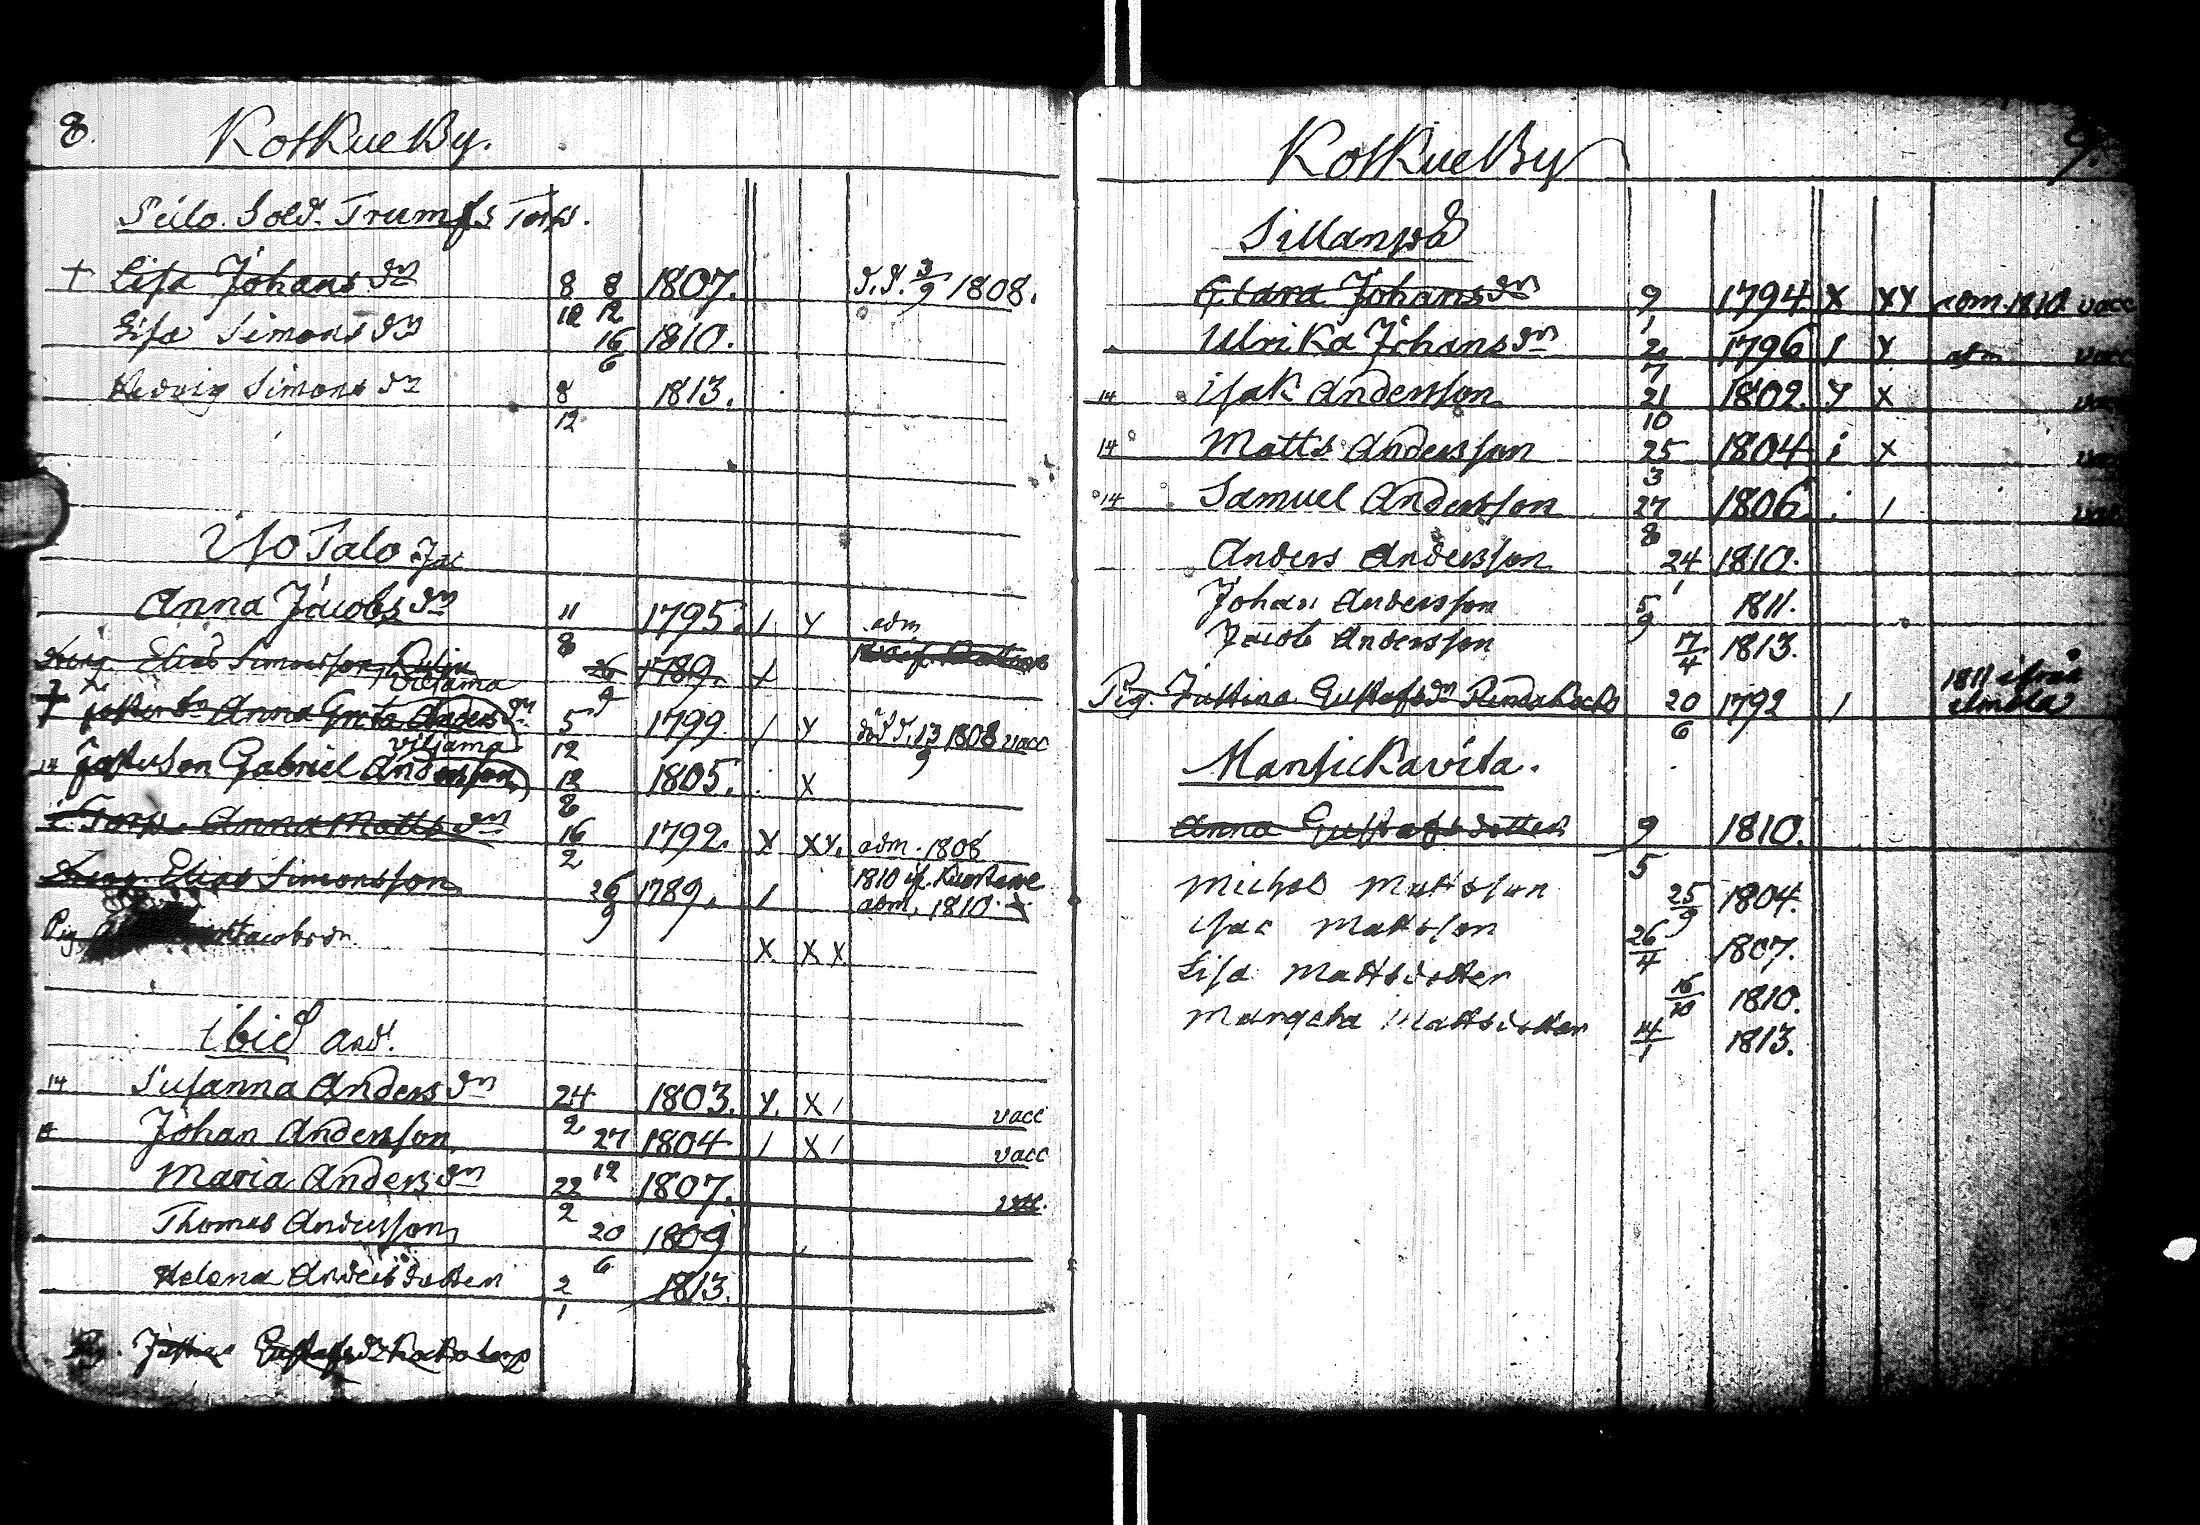 8.
Kotkue By.
Seilo. Sold. Trumfs Torp.
+ Lisa Johans dr 8 8 1807. d.d. 3/9 1808.
10 12
Lisa Simons dr 16/6 1810.
Hedvig Simons dr 8/12 1813.
Iso Talo Jac
Anna Jacobs dr 11/8 1795. / y adm
Elias Simonsson 26/9 1789. x
viljama
Anna Greta Anders dr 5/12 1799 / y död d. 13/9 1808 vacc
viljama
14 Gabriel Andersson 12/8 1805. . x
i Torp. Anna Matts dr 16/2 1792. x xy. adm. 1808
Dreng. Elias Simonsson 26/9 1789. / 1810 if.
adm. 1810.
Pig. Jacobs dr. x. x x.
ibid And.
14 Susanna Anders dr 24/2 1803. y. x / vacc
Johan Andersson 27/12 1804 / x / vacc
Maria Anders dr 22/2 1807. vacc.
Thomas Andersson 20/6 1809
Helena Andersdotter 2/1 1813.
Pig.
9.
Kotkue By
Sillanpä
Clara Johans dr 9/1 1794. x xy adm. 1810 vacc
Ulrika Johans dr 2/7 1796 / y adm vacc
14 isak Andersson 21/10 1802. y x
14 Matts Andersson 25/3 1804 i x
14 Samuel Andersson 27/8 1806. i /
Anders Andersson 24/1 1810.
Johan Andersson 5/9 1811.
Jacob Andersson 17/4 1813.
Pig. Justina Gustafs dr 20/6 1792 / 1811 ifrån
Mansickavita.
Anna Gustafsdotter 9/5 1810.
Michel Mattsson 25/9 1804.
Isac Mattsson 26/4 1807.
Lisa Mattsdotter 16/10 1810.
Margeta Mattsdotter 14/1 1813.